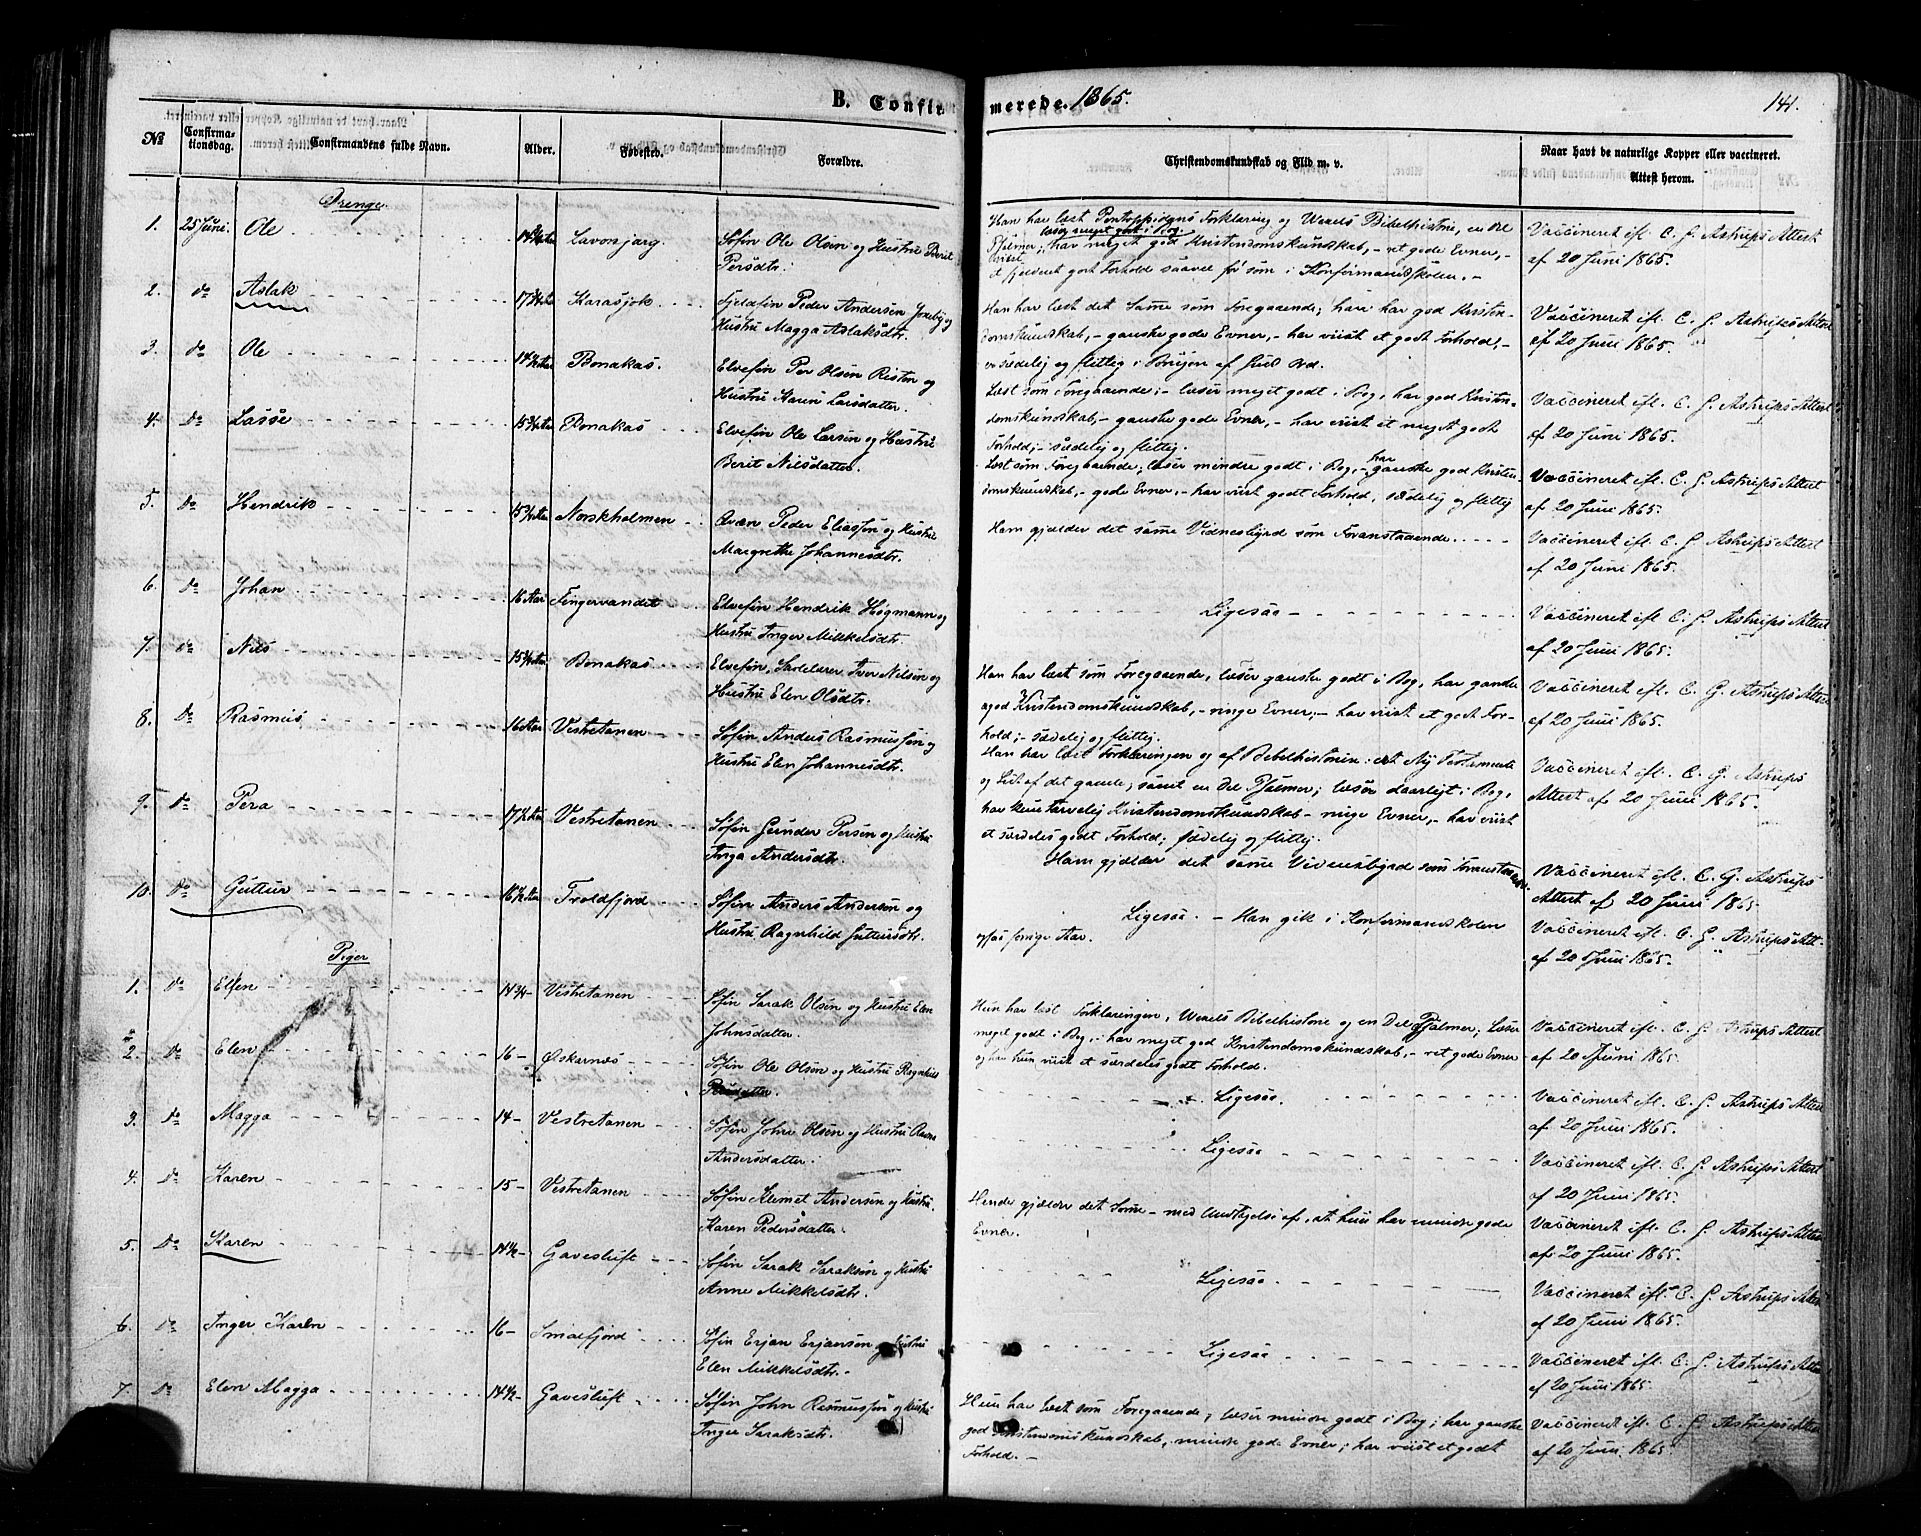 B. Confirmerede. 1865.
141.
№ Confirmationsdag. Confirmandens fulde Navn. Alder. Fødested. Forældre. Christendomskundskab og Flid m. v. Naar havt de naturlige Kopper eller vaccineret. Attest herom.
Drenge
1. 25 Juni. Ole Lavonjarg. Søfin Ole Olsen og Hustru Berit
Persdtr.
Han har læst Pontoppidans Forklaring og Wexels Bibelhistorie, en Del
læser meget godt i Bog.
Psalmer; har meget god Kristendomskundskab, - ret gode Evner, -
viist
et sjeldent godt Forhold saavel før som i Konfirmandskolen. -
Vaccineret ifl. C. G. Astrups Attest
af 20 Juni 1865.
2. Do Aslak 17 Karasjok Fjeldfin Peder Andersen og
Hustru Magga Aslaksdtr.
Han har læst det Samme som Foregaaende; har god Kristen-
domskundskab, - ganske gode Evner, - har viist et godt Forhold, -
er sædelig og flittig i Brugen af Guds Ord.
Vaccineret ifl. C. G. Astrups Attest
af 20 Juni 1865.
3. Do Ole 14½ Aar Bonakas. Elvefin Per Olsen Risten og
Hustru Karen Larsdatter.
Læst som Foregaaende; - læser meget godt i Bog, har god Kristen-
domskundskab, - ganske gode Evner, - har viist et meget godt
Forhold; - sædelig og flittig.
Vaccineret ifl. C. G. Astrups Attest
af 20 Juni 1865.
4. Do Lasse 15 Bonakas Elvefin Ole Larsen og Hustru
Berit Nilsdatter.
Læst som Foregaaende; læser mindre godt i Bog, - har ganske god Kristen-
domskundskab, - gode Evner, - har viist godt Forhold, sædelig og flittig
Vaccineret ifl. C. G. Astrups Attest
af 20 Juni 1865.
5. Do Hendrik 15 Norskholmen Qvæn Peder Eliassen og Hustru
Margrethe Johannesdtr.
Ham gjælder det samme Vidnesbyrd som Foranstaaende.
Vaccineret ifl. C. G. Astrups Attest
af 20 Juni 1865.
6. Do Johan 16 Aar Fingervandet Elvefin Hendrik Høgmann og
Hustru Inger Mikkelsdtr.
Ligesaa
Vaccineret ifl. C. G. Astrups Attest
af 20 Juni 1865.
7. Do Nils 15 Bonakas Elvefin, Iver Nilsen og
Hustru Elen Olsdtr.
Han har læst som Foregaaende, læser ganske godt i Bog, har ganske
god Kristendomskundskab, - ringe Evner; - har viist et godt For-
hold; - sædelig og flittig.
Vaccineret ifl. C. G. Astrups Attest
af 20 Juni 1865.
8. Do Rasmus 16 Aar Vestretanen Søfin Anders Rasmussen og
Hustru Elen Johannesdtr.
Han har læst Forklaringen og af Bibelhistorien: det Ny Testamente
og Lidt af det gamle; samt en Del Psalmer; læser daarligt i Bog,
har kun tarvelig Kristendomskundskab - ringe Evner, - har viist
et særdeles godt Forhold; sædelig og flittig.
Vaccineret ifl. C. G. Astrups
Attest af 20 Juni 1865.
9. Do Pera 17½ Aar Vestretanen Søfin Gunder Persen og Hustru
Inga Andersdtr.
Ham gjælder det samme Vidnesbyrd som Foranstaaende
Vaccineret ifl. C. G. Astrups
Attest af 20 Juni 1865
10. Do Guttur 16½ Aar Troldfjord Søfin Anders Andersen og
Hustru Ragnhild Guttursdtr.
Ligesaa. - Han gik i Konfirmandskolen
ogsaa forrige Aar.
Vaccineret ifl. C. G. Astrups Att.
af 20 Juni 1865.
Piger
1. Do Ellen 14¾ - Vestretanen Søfin Sarak Olsen og Hustru Elen
Johnsdatter.
Hun har læst Forklaringen, Wexels Bibelhistorie og en Del Psalmer; læser
meget godt i Bog, - har meget god Kristendomskundskab, - ret gode Evner
og har hun viist et særdeles godt Forhold.
Vaccineret ifl. C. G. Astrups Attest
af 20 Juni 1865.
2. Do Elen 16 - Øskarnæs Søfin Ole Olsen og Hustru Ragnhild
Ligesaa.
Vaccineret ifl. C. G. Astrups Attest
af 20 Juni 1865.
3. Do Magga 14 - Vestretanen Søfin John Olsen og Hustru
Andersdatter.
Ligesaa
Vaccineret ifl. C. G. Astrups Attest
af 20 Juni 1865.
4. Do Karen 15 - Vestretanen Søfin Klemet Andersen og Hustru
Karen Pedersdatter.
Hende gjælder det Samme - med Undtagelse af, at hun har mindre gode
Evner.
Vaccineret ifl. C. G. Astrups Attest
af 20 Juni 1865.
5. Do Karen 14½ - Gavesluft Søfin Sarak Saraksen og Hustru
Anne Mikkelsdtr.
Ligesaa
Vaccineret ifl. C. G. Astrups Attest
af 20 Juni 1865.
6. Do Inger Karen 16 - Smalfjord Søfin Erjan Erjansen og Hustru
Elen Mikkelsdtr.
Ligesaa
Vaccineret ifl. C. G. Astrups Attest
af 20 Juni 1865.
7. Do Elen Magga 14½ - Gavesluft Søfin John Rasmussen og Hustru
Inger Saraksdtr.
Hun har læst som Foregaaende, læser mindre godt i Bog; har ganske
god Kristendomskundskab, mindre gode Evner; har viist et godt
Forhold. -
Vaccineret ifl. C. G. Astrups Attest
af 20 Juni 1865.